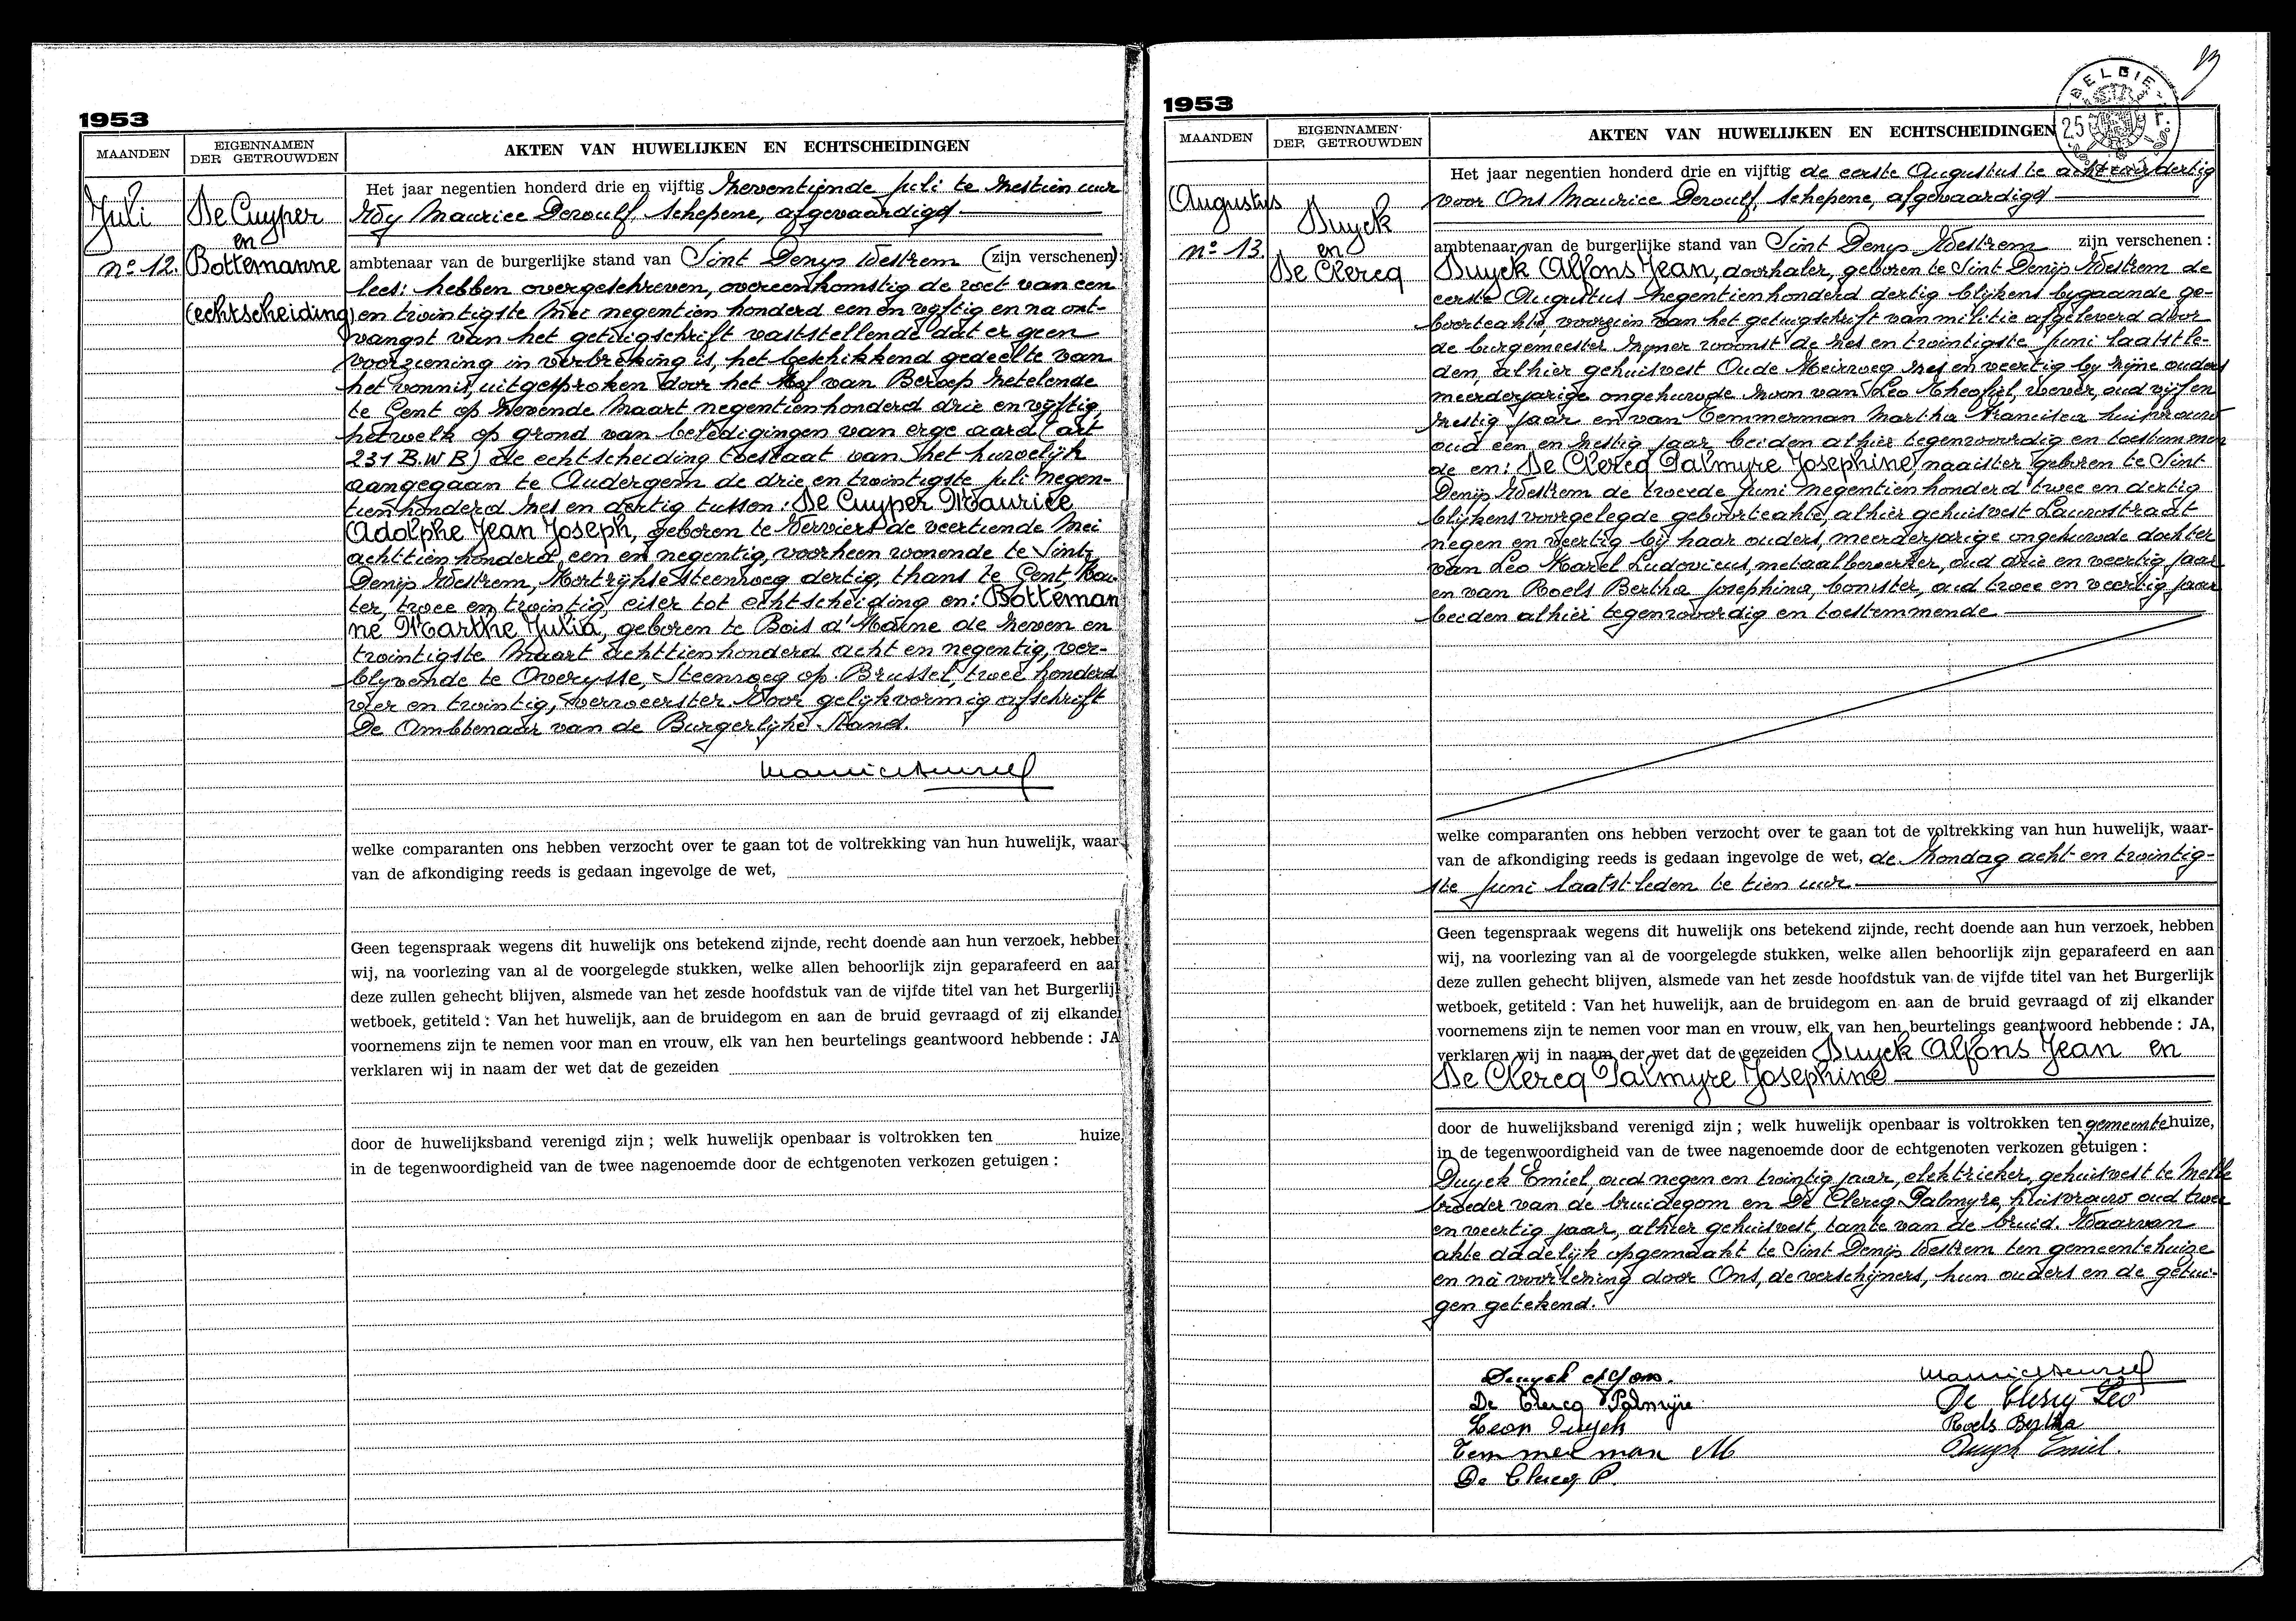 1953
MAANDEN
EIGENNAMEN
DER GETROUWDEN
AKTEN VAN HUWELIJKEN EN ECHTSCHEIDINGEN
Juli
n° 12.
De Cuyper
en
Bottemanne
(echtscheiding)
Het jaar negentien honderd drie en vijftig zeventiende juli te zestien uur
Wÿ Maurice Dewulf, schepene, afgevaardigd
ambtenaar van de burgerlijke stand van Sint Denys Westrem (zijn verschenen):
lees: hebben overgeschreven, overeenkomstig de wet van een
en twintigste Mei negentien honderd een en vijftig en na ont-
vangst van het getuigschrift vaststellende dat er geen
voorziening in verbreking is, het beschikkend gedeelte van
het vonnis, uitgesproken door het Hof van Beroep zetelende
te Gent op zevende Maart negentienhonderd drie en vijftig,
hetwelk op grond van beledigingen van erge aard (art
231 B.W B) de echtscheiding toestaat van het huwelijk
aangegaan te Audergem de drie en twintigste juli negen-
tienhonderd zes en dertig tussen: De Cuyper Maurice
Adolphe Jean Joseph, geboren te Verviers de veertiende Mei
achttienhonderd een en negentig, voorheen wonende te Sint
Denijs Westrem, Kortrijkse steenweg dertig, thans te Gent, Kou-
ter, twee en twintig, eiser tot echtscheiding en: Botteman
ne Marthe Julia, geboren te Bois d'Haine de zeven en
twintigste Maart achttienhonderd acht en negentig, ver-
blyvende te Overysse, Steenweg op Brussel, twee honderd
vier en twintig, verweerster. Voor gelijkvormig afschrift
De Ambtenaar van de Burgerlijke Stand.
welke comparanten ons hebben verzocht over te gaan tot de voltrekking van hun huwelijk, waar
van de afkondiging reeds is gedaan ingevolge de wet,
Geen tegenspraak wegens dit huwelijk ons betekend zijnde, recht doende aan hun verzoek, hebben
wij, na voorlezing van al de voorgelegde stukken, welke allen behoorlijk zijn geparafeerd en aan
deze zullen gehecht blijven, alsmede van het zesde hoofdstuk van de vijfde titel van het Burgerlijk
wetboek, getiteld : Van het huwelijk, aan de bruidegom en aan de bruid gevraagd of zij elkander
voornemens zijn te nemen voor man en vrouw, elk van hen beurtelings geantwoord hebbende : JA
verklaren wij in naam der wet dat de gezeiden
door de huwelijksband verenigd zijn ; welk huwelijk openbaar is voltrokken ten huize,
in de tegenwoordigheid van de twee nagenoemde door de echtgenoten verkozen getuigen :
1953
BELGIE
25 fr.
MAANDEN
EIGENNAMEN
DER GETROUWDEN
AKTEN VAN HUWELIJKEN EN ECHTSCHEIDINGEN
Augustus
n° 13.
Duyck
en
De Clercq
Het jaar negentien honderd drie en vijftig de eerste Augustus te acht uur dertig
voor Ons Maurice Dewulf, schepene, afgevaardigd
ambtenaar van de burgerlijke stand van Sint Denys Westrem zijn verschenen :
Duyck Alfons Jean, doorhaler, geboren te Sint Denijs Westrem de
eerste Augustus negentienhonderd dertig blijkens bygaande ge-
boorteakte, voorzien van het getuigschrift van militie afgeleverd door
de burgemeester zijner woonst de zes en twintigste juni laatstle-
den, alhier gehuisvest Oude Meirweg zes en veertig by zijne ouders
meerderjarige ongehuwde zoon van Leo Theofiel, wever, oud vijf en
zestig jaar en van Temmerman Martha Francisca huisvrouw
oud een en zestig jaar, beiden alhier tegenwoordig en toestemmen
de en: De Clercq Palmyre Josephine naaister geboren te Sint
Denijs Westrem de tweede juni negentienhonderd twee en dertig
blijkens voorgelegde geboorteakte, alhier gehuisvest Lauwstraat
negen en veertig bij haar ouders, meerderjarige ongehuwde dochter
van Leo Karel Ludovicus, metaalbewerker, oud drie en veertig jaar
en van Roels Bertha Josephina, bonister, oud twee en veertig jaar
beiden alhier tegenwoordig en toestemmende.
welke comparanten ons hebben verzocht over te gaan tot de voltrekking van hun huwelijk, waar-
van de afkondiging reeds is gedaan ingevolge de wet, de Zondag acht en twintig-
ste juni laatstleden te tien uur
Geen tegenspraak wegens dit huwelijk ons betekend zijnde, recht doende aan hun verzoek, hebben
wij, na voorlezing van al de voorgelegde stukken, welke allen behoorlijk zijn geparafeerd en aan
deze zullen gehecht blijven, alsmede van het zesde hoofdstuk van de vijfde titel van het Burgerlijk
wetboek, getiteld : Van het huwelijk, aan de bruidegom en aan de bruid gevraagd of zij elkander
voornemens zijn te nemen voor man en vrouw, elk van hen beurtelings geantwoord hebbende : JA,
verklaren wij in naam der wet dat de gezeiden Duyck Alfons Jean en
De Clercq Palmyre Josephine
door de huwelijksband verenigd zijn ; welk huwelijk openbaar is voltrokken ten gemeentehuize,
in de tegenwoordigheid van de twee nagenoemde door de echtgenoten verkozen getuigen :
Duyck Emiel, oud negen en twintig jaar, elektrieker, gehuisvest te Melle
broeder van de bruidegom en De Clercq Palmyre, huisvrouw oud twee
en veertig jaar, alhier gehuisvest, tante van de bruid. Waarvan
akte dadelijk opgemaakt te Sint Denijs Westrem ten gemeentehuize
en nà voorlezing door Ons, de verschijners, hun ouders en de getui-
gen getekend.
Duyck Alfons.
De Clercq Palmyre
De Clercq Leo
Leon Duyck
Roels Bertha
Temmerman M
Duyck Emiel.
De Clercq P.